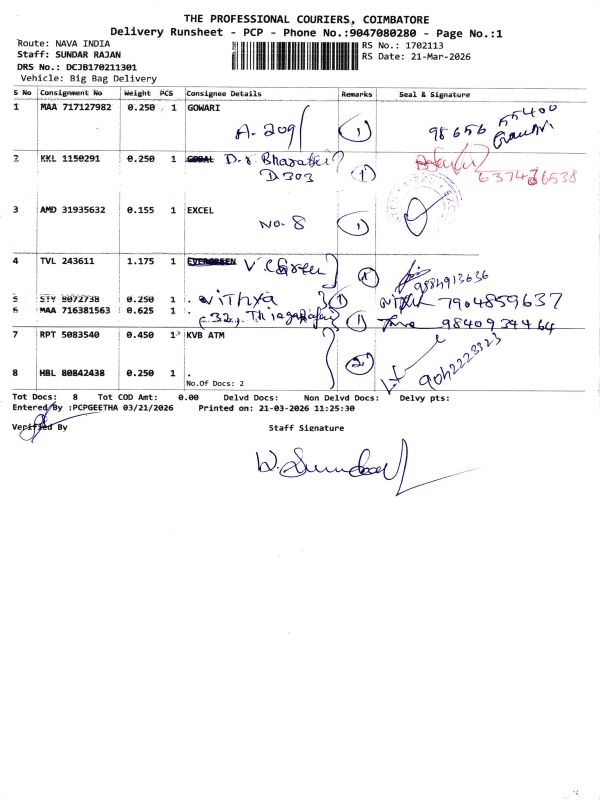 THE PROFESSIONAL COURIERS, COIMBATORE
Delivery Runsheet - PCP - Phone No.:9047080280 - Page No.:1
Route: NAVA INDIA
Staff: SUNDAR RAJAN
DRS No.: DCJB170211301
Vehicle: Big Bag Delivery
RS No.: 1702113
RS Date: 21-Mar-2026
S No Consignment No Weight PCS Consignee Details Remarks Seal & Signature
1 MAA 717127982 0.250 1 GOWARI
A. 209 1 98656 55400
2 KKL 1150291 0.250 1 GOPAL D.r Bharathi
D.303 1 6374776538
3 AMD 31935632 0.155 1 EXCEL
No. 8 1
4 TVL 243611 1.175 1 EVERGREEN V. Green
9884913636
5 STY 8072738 0.250 1 . Nithya 1 7904859637
6 MAA 716381563 0.625 1 . (32, 1 9840934464
7 RPT 5083540 0.450 1 KVB ATM
2
8 HBL 80842438 0.250 1 .
No.Of Docs: 2
Tot Docs: 8 Tot COD Amt: 0.00 Delvd Docs: Non Delvd Docs: Delvy pts:
Entered By :PCPGEETHA 03/21/2026 Printed on: 21-03-2026 11:25:30
Verified By Staff Signature